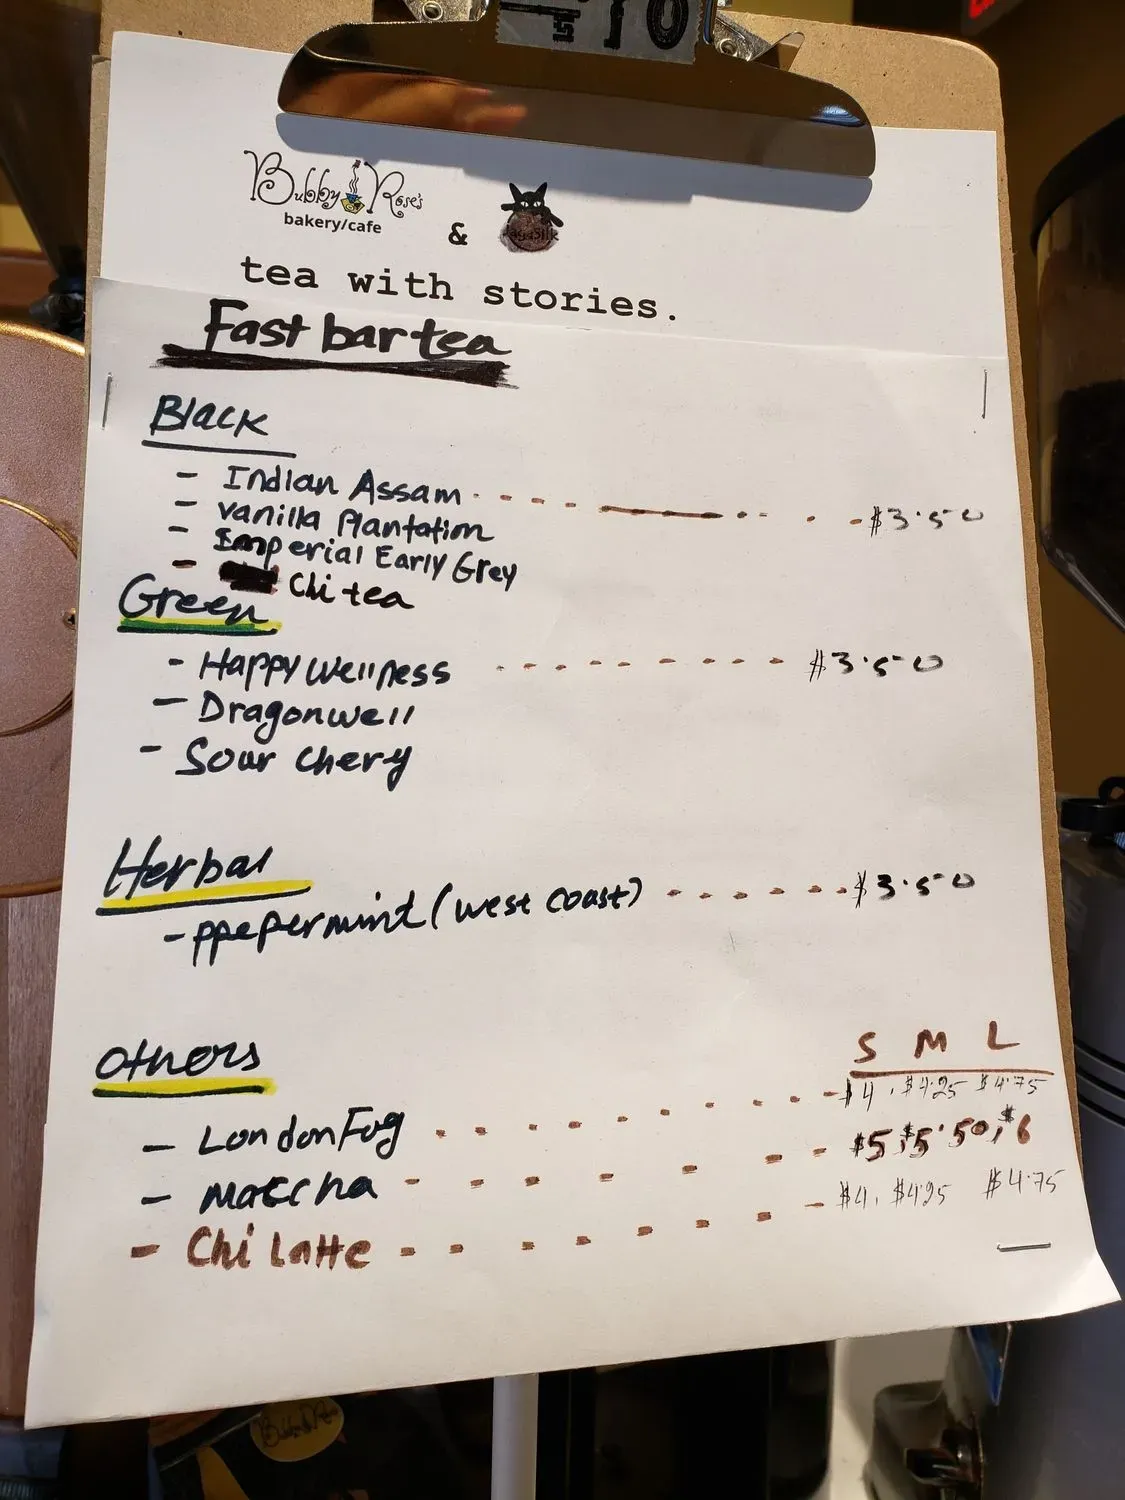 Bubby Rose's
bakery/cafe
&
tea with stories.
Fast bar tea
Black
- Indian Assam $3.50
- Vanilla Plantation
- Imperial Early Grey
- Chi tea
Green
- Happy Wellness $3.50
- Dragonwell
- Sour Chery
Herbal
- ppepermint (west coast) $3.50
Others
S M L
- London Fog $4, $4.25 $4.75
- Matcha $5, $5.50, $6
- Chi Latte $4, $4.25 $4.75